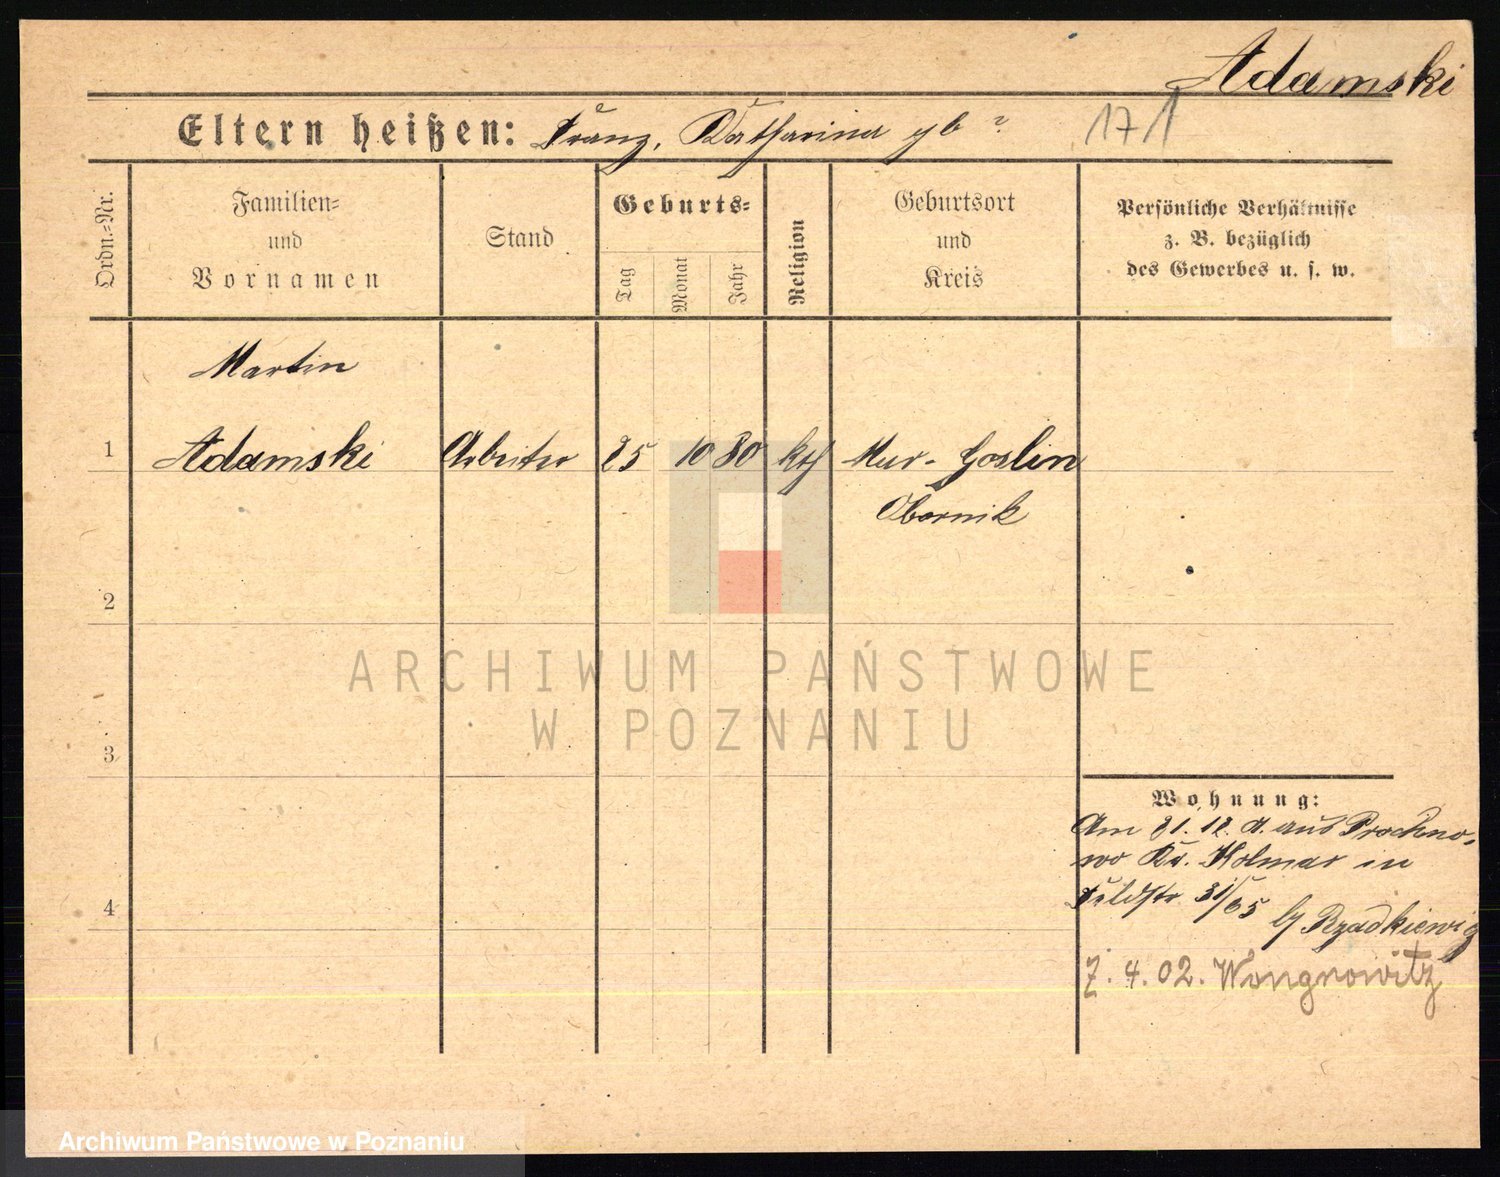 Adamski
Eltern heißen: Franz, Katharina gb ? 171
Ordn.-Nr.
Familien-
und
Vornamen
Stand
Geburts-
Tag
Monat
Jahr
Religion
Geburtsort
und
Kreis
Persönliche Verhältnisse
z. B. bezüglich
des Gewerbes u. s. w.
Martin
1 Adamski Arbeiter 25 10 80 kth Mur-Goslin
Obornik
2
ARCHIWUM PAŃSTWOWE
W POZNANIU
3
Wohnung:
Am 21.12. d. aus Prochno-
wo Kr. Kolmar in
Feldstr 31/35
b/ Rzadkiewicz
4
7. 4. 02. Wongrowitz
Archiwum Państwowe w Poznaniu